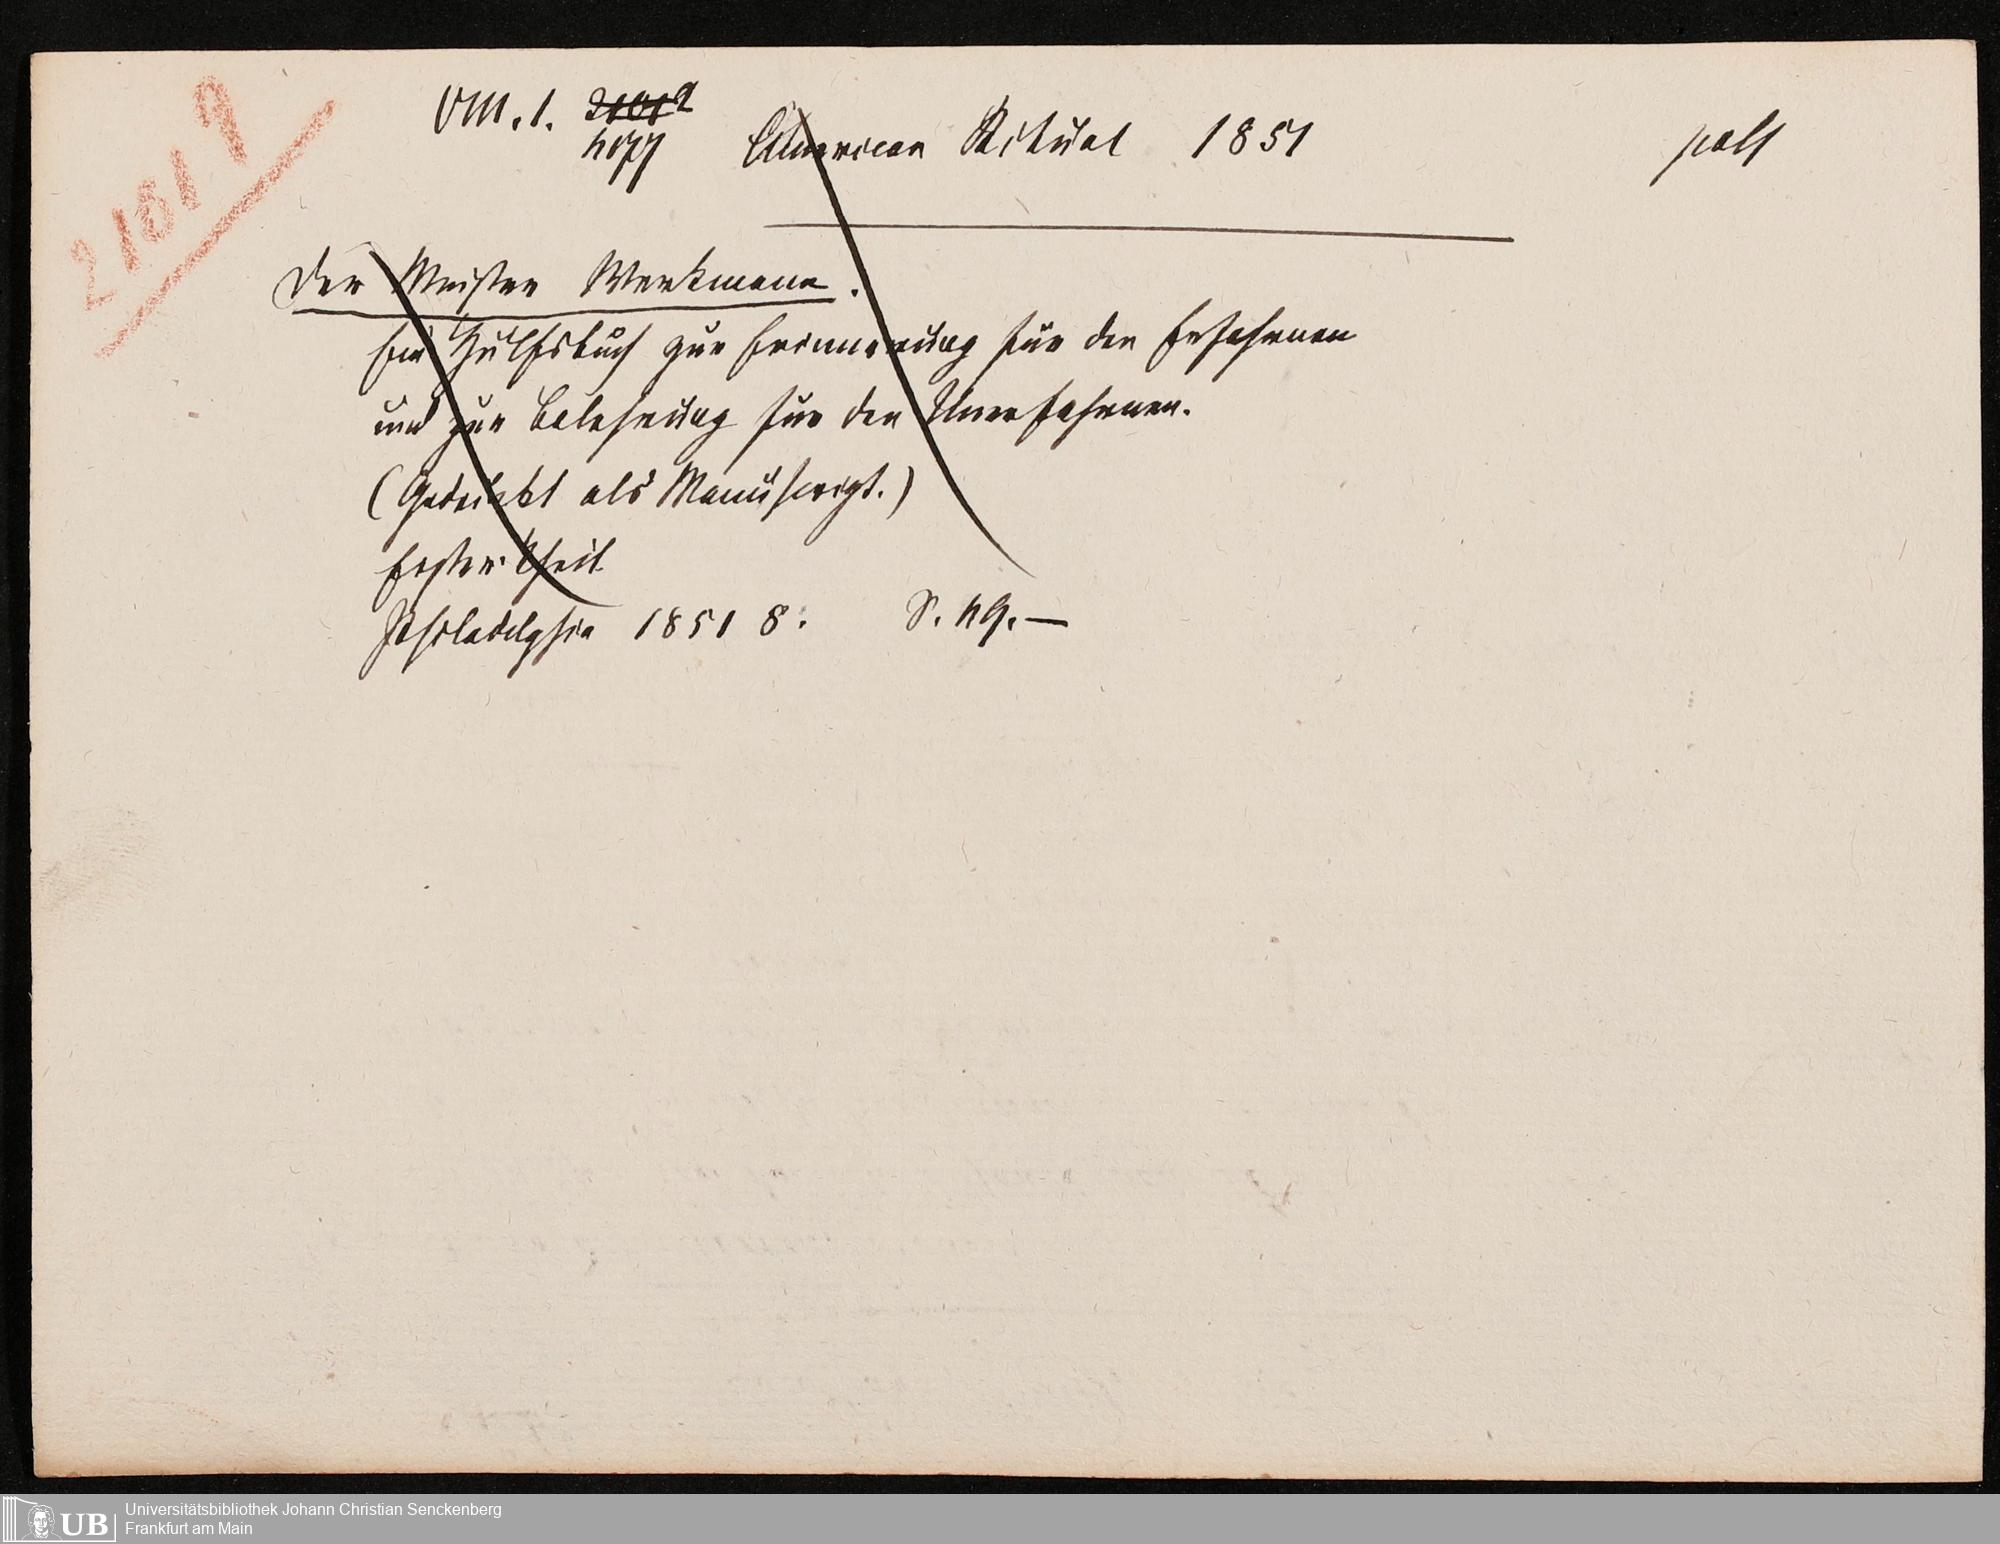 21019
VIII. 1. 21019 American Ritual 1851
Der Meister Werkmann.
Ein Hülfsbuch zur Erinnerung für den Erfahrenen
und zur Belehrung für den Unerfahrenen.
(Gedruckt als Manuscript.)
Erster Theil
Philadelphia 1851 8.
Universitätsbibliothek Johann Christian Senckenberg
Frankfurt am Main
UB